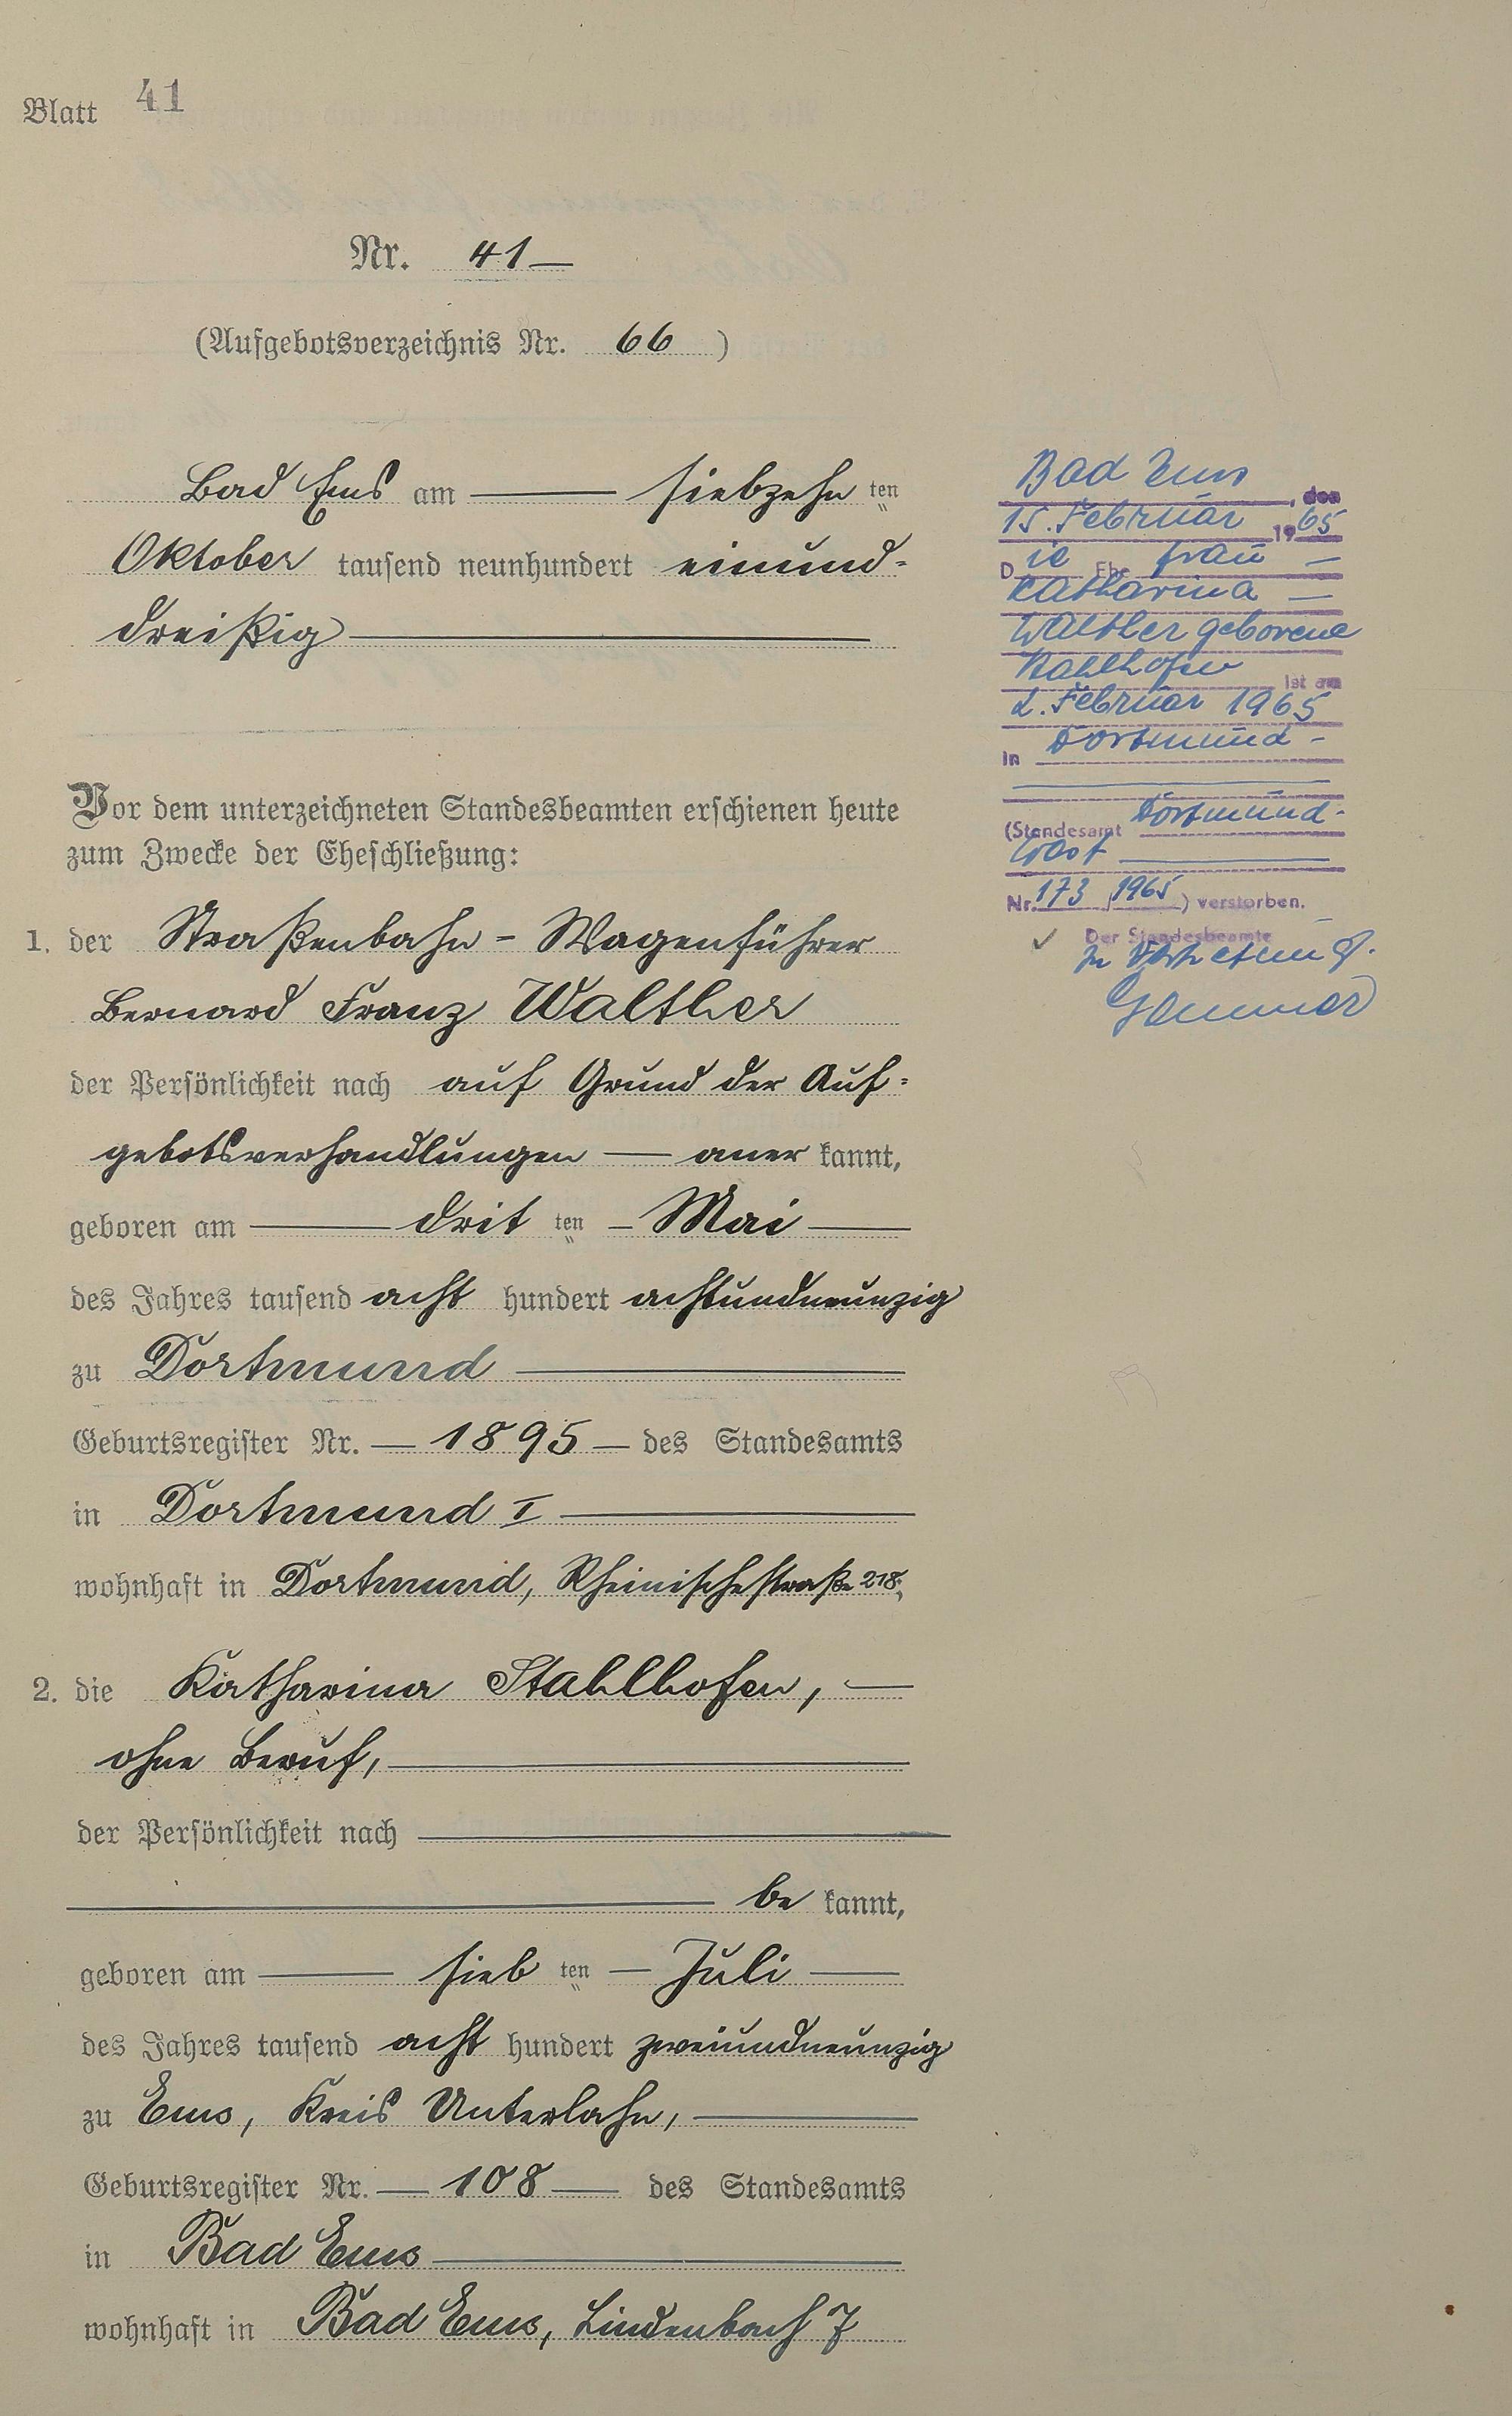 Blatt 41
Nr. 41
(Aufgebotsverzeichnis Nr. 66)
Bad Ems am siebzehn ten
Oktober tausend neunhundert einund-
dreißig
Vor dem unterzeichneten Standesbeamten erschienen heute
zum Zwecke der Eheschließung:
1. der Straßenbahn-Wagenführer
Bernard Franz Walther
der Persönlichkeit nach auf Grund der Auf-
gebotsverhandlungen — aner kannt,
geboren am drit ten Mai
des Jahres tausend acht hundert achtundneunzig
zu Dortmund
Geburtsregister Nr. 1895 des Standesamts
in Dortmund I
wohnhaft in Dortmund, Rheinischestraße 218;
2. die Katharina Stahlhofen,
ohne Beruf,
der Persönlichkeit nach
be kannt,
geboren am sieb ten Juli
des Jahres tausend acht hundert zweiundneunzig
zu Ems, Kreis Unterlahn,
Geburtsregister Nr. 108 des Standesamts
in Bad Ems
wohnhaft in Bad Ems, Lindenbach 7
Bad Ems, den
15. Februar 1965
Die Ehefrau
Katharina
Walther geborene
Stahlhofen ist am
2. Februar 1965
in Dortmund
(Standesamt Dortmund-
West
Nr. 173/1965) verstorben.
Der Standesbeamte
In Vertretung.